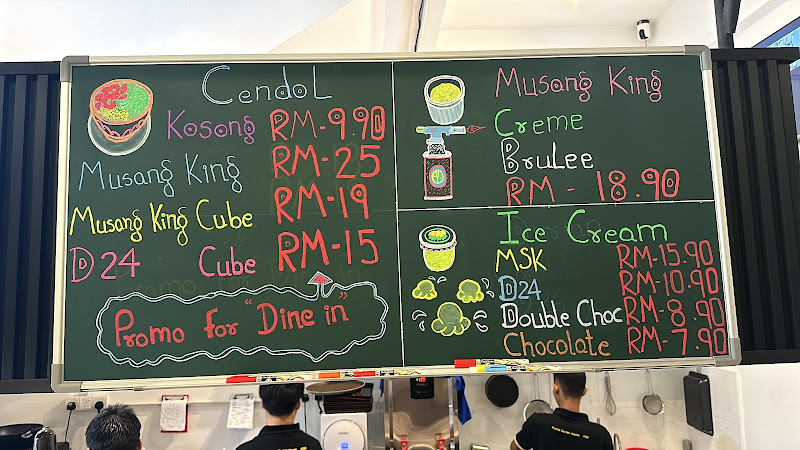 Cendol
Kosong RM-9.90
Musang King RM-25
Musang King Cube RM-19
D24 Cube RM-15
Promo for "Dine in"
Musang King
Creme
Brulee
RM-18.90
Ice Cream
MSK RM-15.90
D24 RM-10.90
Double Choc RM-8.90
Chocolate RM-7.90